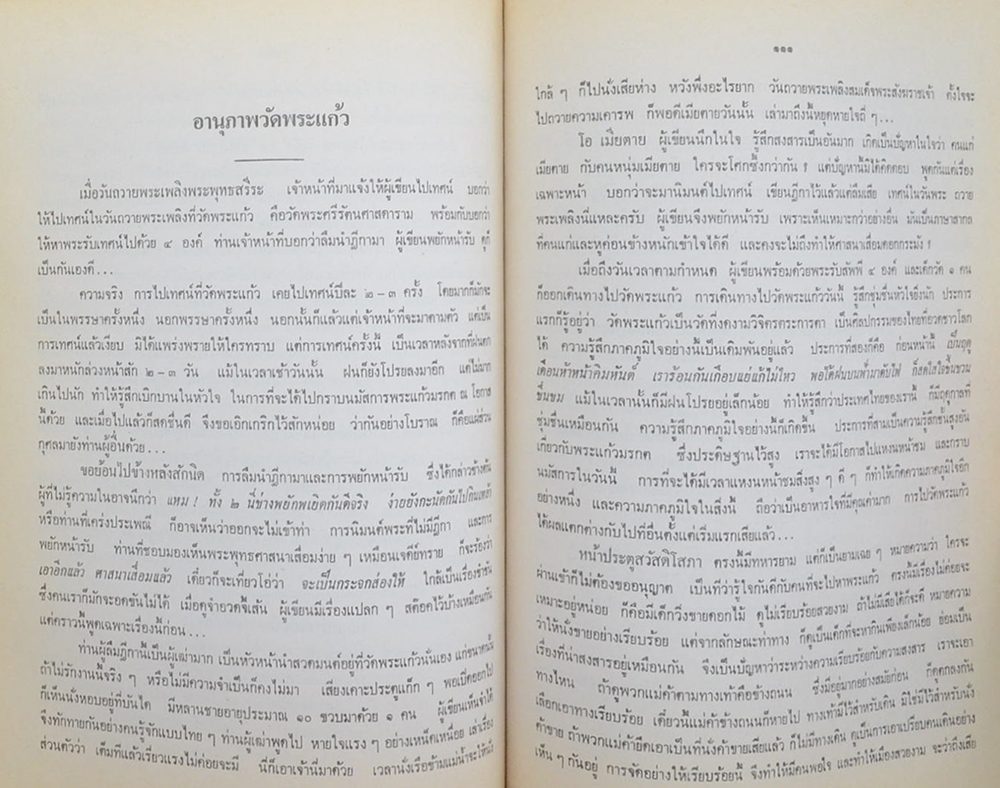 อานุภาพวัดพระแก้ว
เมื่อวันถวายพระเพลิงพระพุทธสรีระ เจ้าหน้าที่มาแจ้งให้ผู้เขียนไปเทศน์ บอกว่า
ให้ไปเทศน์ในวันถวายพระเพลิงที่วัดพระแก้ว คือวัดพระศรีรัตนศาสดาราม พร้อมกับบอกว่า
ให้หาพระรับเทศน์ไปด้วย ๔ องค์ ท่านเจ้าหน้าที่บอกว่าลืมนำฎีกามา ผู้เขียนพยักหน้ารับ ดูก็
เป็นกันเองดี...
ความจริง การไปเทศน์ที่วัดพระแก้ว เคยไปเทศน์ปีละ ๒ – ๓ ครั้ง โดยมากก็มักจะ
เป็นในพรรษาครั้งหนึ่ง นอกพรรษาครั้งหนึ่ง นอกนั้นก็แล้วแต่เจ้าหน้าที่จะมาตามตัว แต่เป็น
การเทศน์แล้วเงียบ มิได้แพร่งพรายให้ใครทราบ แต่การเทศน์ครั้งนี้ เป็นเวลาหลังจากที่ฝนตก
ลงมาหนักล่วงหน้าสัก ๒ – ๓ วัน แม้ในเวลาเช้าวันนั้น ฝนก็ยังโปรยลงมาอีก แต่ไม่มาก
เกินไปนัก ทำให้รู้สึกเบิกบานในหัวใจ ในการที่จะได้ไปกราบนมัสการพระแก้วมรกต ณ โอกาส
นี้ด้วย และเมื่อไปแล้วก็สดชื่นดี จึงขอเอิกเกริกไว้สักหน่อย ว่ากันอย่างโบราณ ก็คือแผ่ส่วน
กุศลมายังท่านผู้อื่นด้วย...
ขอย้อนไปข้างหลังสักนิด การลืมนำฎีกามาและการพยักหน้ารับ ซึ่งได้กล่าวข้างต้น
ผู้ที่ไม่รู้ความในอาจนึกว่า แหม ! ทั้ง ๒ นี่ช่างพยักพเยิดกันดีจริง ง่ายยังกะนัดกันไปกินเหล้า
หรือท่านที่เคร่งประเพณี ก็อาจเห็นว่าออกจะไม่เข้าท่า การนิมนต์พระที่ไม่มีฎีกา และการ
พยักหน้ารับ ท่านที่ชอบมองเห็นพระพุทธศาสนาเสื่อมง่าย ๆ เหมือนเจดีย์ทราย ก็จะร้องว่า
เอาอีกแล้ว ศาสนาเสื่อมแล้ว เดี๋ยวก็จะเที่ยวโอ่ว่า จะเป็นกระจกส่องให้ ใกล้เป็นเรื่องขำขัน
ซึ่งคนเราก็มักจะอดขันไม่ได้ เมื่อดูจำอวดจี้เส้น ผู้เขียนมีเรื่องแปลก ๆ สต๊อคไว้บ้างเหมือนกัน
แต่คราวนี้พูดเฉพาะเรื่องนี้ก่อน...
ท่านผู้ลืมฎีกานี้เป็นผู้เฒ่ามาก เป็นหัวหน้านำสวดมนต์อยู่ที่วัดพระแก้วนั่นเอง แก่ขนาดนั้น
ถ้าไม่รักงานนี้จริง ๆ หรือไม่มีความจำเป็นก็คงไม่มา เสียงเคาะประตูแก็ก ๆ พอเปิดออกไป
ก็เห็นนั่งหอบอยู่ที่บันได มีหลานชายอายุประมาณ ๑๐ ขวบมาด้วย ๑ คน ผู้เขียนเห็นจำได้
จึงทักทายกันอย่างคนรู้จักแบบไทย ๆ ท่านผู้เฒ่าพูดไป หายใจแรง ๆ อย่างเหน็ดเหนื่อย เล่าเรื่อง
ส่วนตัวว่า เต็มทีแล้วเรี่ยวแรงไม่ค่อยจะมี นี่ก็เอาเจ้านี่มาด้วย เวลานั่งเรือข้ามแม่น้ำจะให้นั่ง
๑๑๑
ใกล้ ๆ ก็ไปนั่งเสียห่าง หวังพึ่งอะไรยาก วันถวายพระเพลิงสมเด็จพระสังฆราชเจ้า ตั้งใจจะ
ไปถวายความเคารพ ก็พอดีเมียตายวันนั้น เล่ามาถึงนี้หยุดหายใจถี่ ๆ...
โอ เมียตาย ผู้เขียนนึกในใจ รู้สึกสงสารเป็นอันมาก เกิดเป็นปัญหาในใจว่า คนแก่
เมียตาย กับคนหนุ่มเมียตาย ใครจะโศกซึ้งกว่ากัน ? แต่ปัญหานี้มิได้คิดตอบ พูดกันแต่เรื่อง
เฉพาะหน้า บอกว่าจะมานิมนต์ไปเทศน์ เขียนฎีกาไว้แล้วแต่ลืมเสีย เทศน์ในวันพระ ถวาย
พระเพลิงนี่แหละครับ ผู้เขียนจึงพยักหน้ารับ เพราะเห็นเหมาะกว่าอย่างอื่น มันเป็นภาษาสากล
ที่คนแก่และหูค่อนข้างหนักเข้าใจได้ดี และคงจะไม่ถึงทำให้ศาสนาเสื่อมดอกกระมัง ?
เมื่อถึงวันเวลาตามกำหนด ผู้เขียนพร้อมด้วยพระรับสัพพี ๔ องค์ และเด็กวัด ๑ คน
ก็ออกเดินทางไปวัดพระแก้ว การเดินทางไปวัดพระแก้ววันนี้ รู้สึกชุ่มชื่นหัวใจยิ่งนัก ประการ
แรกก็รู้อยู่ว่า วัดพระแก้วเป็นวัดที่งดงามวิจิตรตระการตา เป็นศิลปกรรมของไทยที่อวดชาวโลก
ได้ ความรู้สึกภาคภูมิใจอย่างนี้เป็นเดิมพันอยู่แล้ว ประการที่สองก็คือ ก่อนหน้านี้ เป็นฤดู
เดือนห้าหน้าคิมหันต์ เราร้อนกันเกือบแย่แก้ไม่ไหว พอได้ฝนบนฟ้ามาดับไฟ ก็สดใสใจชื่นชวน
ชื่นชม แม้ในเวลานั้นก็มีฝนโปรยอยู่เล็กน้อย ทำให้รู้สึกว่าประเทศไทยของเรานี้ ก็มีฤดูกาลที่
ชุ่มชื่นเหมือนกัน ความรู้สึกภาคภูมิใจอย่างนี้ก็เกิดขึ้น ประการที่สามเป็นความรู้สึกชั้นสูงอัน
เกี่ยวกับพระแก้วมรกต ซึ่งประดิษฐานไว้สูง เราจะได้มีโอกาสไปแหงนหน้าชม และกราบ
นมัสการในวันนี้ การที่จะได้มีเวลาแหงนหน้าชมสิ่งสูง ๆ ดี ๆ ก็ทำให้เกิดความภาคภูมิใจอีก
อย่างหนึ่ง และความภาคภูมิใจในสิ่งนี้ ถือว่าเป็นอาหารใจที่มีคุณค่ามาก การไปวัดพระแก้ว
ได้ผลแตกต่างกับไปที่อื่นตั้งแต่เริ่มแรกเสียแล้ว...
หน้าประตูสวัสดิโสภา ตรงนี้มีทหารยาม แต่ก็เป็นยามเฉย ๆ หมายความว่า ใครจะ
ผ่านเข้าก็ไม่ต้องขออนุญาต เป็นที่ว่ารู้ใจกันดีกับคนที่จะไปหาพระแก้ว ตรงนี้มีเรื่องไม่ค่อยจะ
เหมาะอยู่หน่อย ก็คือมีเด็กวิ่งขายดอกไม้ ดูไม่เรียบร้อยสวยงาม ถ้าไม่มีเสียได้ก็จะดี หมายความ
ว่าให้นั่งขายอย่างเรียบร้อย แต่จากลักษณะท่าทาง ก็ดูเป็นเด็กที่จะหากินเพียงเล็กน้อย ย่อมเป็น
เรื่องที่น่าสงสารอยู่เหมือนกัน จึงเป็นปัญหาว่าระหว่างความเรียบร้อยกับความสงสาร เราจะเอา
ทางไหน ถ้าดูพวกแม่ค้าตามทางเท้าคือข้างถนน ซึ่งมีอยู่มากอย่างสมัยก่อน ก็คิดตกลงกัน
เลือกเอาทางเรียบร้อย เดี๋ยวนี้แม่ค้าข้างถนนก็หายไป ทางเท้ามีไว้สำหรับเดิน มิใช่มีไว้สำหรับนั่ง
ค้าขาย ถ้าพวกแม่ค้ายึดเอาเป็นที่นั่งค้าขายเสียแล้ว ก็ไม่มีทางเดิน ดูเป็นการเอาเปรียบคนเดินอย่าง
เห็น ๆ กันอยู่ การจัดอย่างให้เรียบร้อยนี้ จึงทำให้มีคนพอใจ และทำให้เมืองสวยงาม จะว่าถึงเสีย